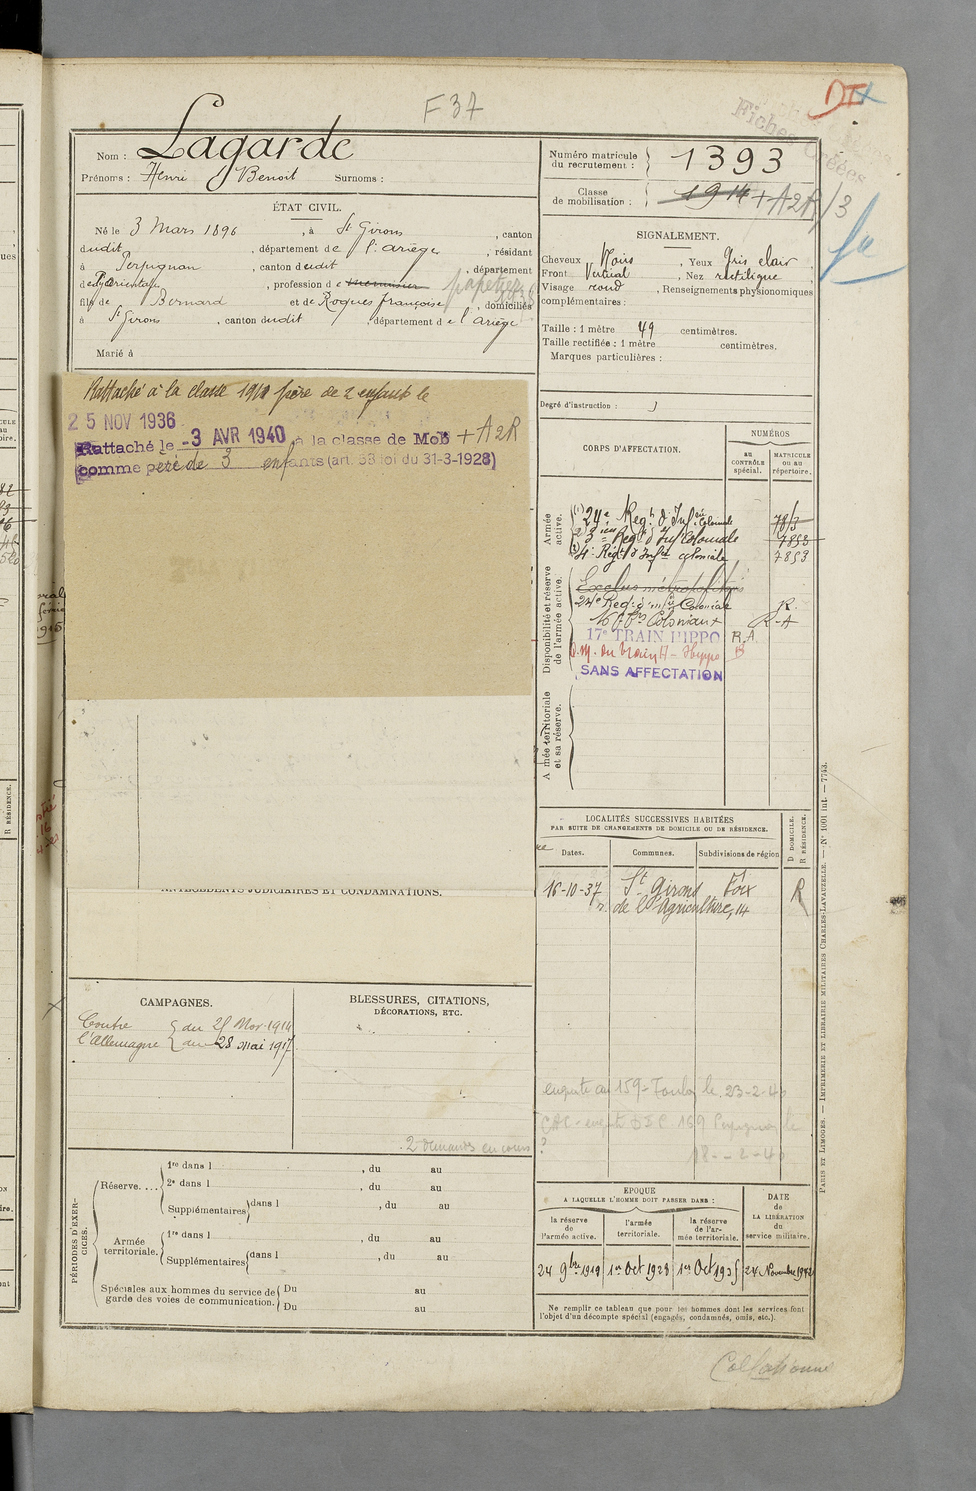 F 37
Fiches Créées
Nom : Lagarde
Prénoms : Henri Benoit Surnoms :
Numéro matricule du recrutement : 1393
Classe de mobilisation : 1914 + A2R/3
ÉTAT CIVIL.
Né le 3 Mars 1896, à St Girons, canton
dudit, département de l'ariège, résidant
à Perpignan, canton dudit, département
des Pyr orientales, profession de papetier
fils de Bernard et de Roques françoise, domiciliés
à St Girons, canton dudit, département de l'ariège
Marié à
SIGNALEMENT.
Cheveux Noirs, Yeux Gris clair
Front Vertical, Nez rectiligne
Visage rond, Renseignements physionomiques
complémentaires :
Taille : 1 mètre 49 centimètres.
Taille rectifiée : 1 mètre centimètres.
Marques particulières :
Degré d'instruction :
Rattaché à la classe 1910 père de 2 enfants le
25 NOV 1936
Rattaché le -3 AVR 1940 à la classe de Mob + A2R
comme père de 3 enfants (art. 58 loi du 31-3-1928)
CORPS D'AFFECTATION.
NUMÉROS
au CONTRÔLE spécial.
MATRICULE ou au répertoire.
Armée active.
(1) 24e Regt d'Infie Coloniale
(2) 3ème Regt d'Infie Coloniale 7853
(3) 4e Regt d'Infie coloniale 7853
Disponibilité et réserve de l'armée active.
24e Regt d'Infie Coloniale R.
16 Coloniaux R-A
17e TRAIN HIPPO R.A
D.M. du train H- Hyppo B
SANS AFFECTATION
Armée territoriale et sa réserve.
LOCALITÉS SUCCESSIVES HABITÉES
PAR SUITE DE CHANGEMENTS DE DOMICILE OU DE RÉSIDENCE.
D DOMICILE. R RÉSIDENCE.
Dates. Communes. Subdivisions de région
16-10-37 St Girons Foix R
r. de l'Agriculture, 14
ANTÉCÉDENTS JUDICIAIRES ET CONDAMNATIONS.
CAMPAGNES.
Contre du 25 Nov. 1914
l'Allemagne au 28 mai 1917
BLESSURES, CITATIONS,
DÉCORATIONS, ETC.
2 demandes en cours
enquete au 159 - Toulon le 23-2-40
18 - 2 - 40
PÉRIODES D'EXERCICES.
Réserve....
1re dans l , du au
2e dans l , du au
Supplémentaires dans l , du au
Armée territoriale.
1re dans l , du au
Supplémentaires dans l , du au
Spéciales aux hommes du service de garde des voies de communication.
Du au
Du au
ÉPOQUE
A LAQUELLE L'HOMME DOIT PASSER DANS :
la réserve de l'armée active.
l'armée territoriale.
la réserve de l'armée territoriale.
DATE de LA LIBÉRATION du service militaire.
24 9bre 1919 1er Oct 1928 1er Oct 1935 24 Novembre 1942
Ne remplir ce tableau que pour les hommes dont les services font
l'objet d'un décompte spécial (engagés, condamnés, omis, etc.).
PARIS ET LIMOGES. — IMPRIMERIE ET LIBRAIRIE MILITAIRES CHARLES-LAVAUZELLE. — N° 1001 int. — 7743.
Collationné